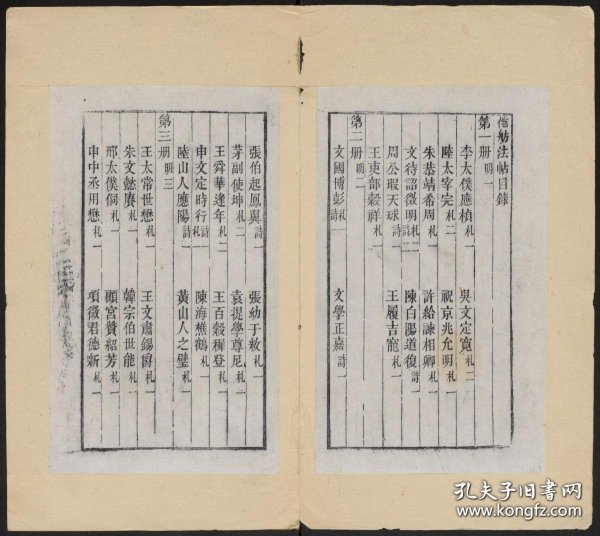 舫法帖目錄
第一册 明一
李太僕應禎 札一 吳文定寬 札二
陸太宰完 札二 祝京兆允明 札一
朱恭靖希周 札一 許給諫相卿 札一
文待詔徵明 札二 詩二 陳白陽道復 詩一
周公瑕天球 詩一 王履吉寵 札一
王吏部穀祥 札一
第二册 明二
文國博彭 札一 詩一 文學正嘉 詩一
張伯起鳳翼 詩一 張幼于敉 札一
茅副使坤 札二 袁提學尊尼 札一
王舜華逢年 札二 王百穀穉登 札一
申文定時行 詩一 札一 陳海樵鶴 札一
陸山人應陽 詩一 黃山人之璧 札一
第三册 明三
王太常世懋 札一 王文肅錫爵 札一
朱文懿賡 札一 韓宗伯世能 札一
邢太僕侗 札一 顧宮贊紹芳 札一
申中丞用懋 札一 項徵君德新 札一
孔夫子旧书网
www.kongfz.com